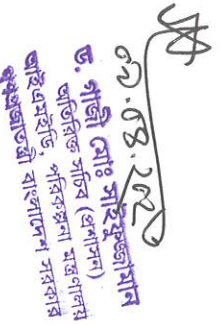 ০৯.০৪.২০২০
ড. গাজী মোঃ সাইফুজ্জামান
অতিরিক্ত সচিব (প্রশাসন)
আইএমইডি, পরিকল্পনা মন্ত্রণালয়
গণপ্রজাতন্ত্রী বাংলাদেশ সরকার